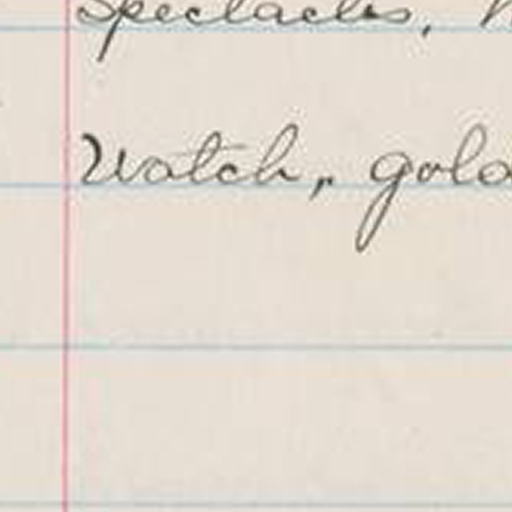 Spectacles,
Watch, gold